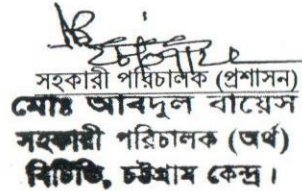 সহকারী পরিচালক (প্রশাসন)
মোঃ আবদুল বায়েস
সহকারী পরিচালক (অর্থ)
বিটিভি, চট্টগ্রাম কেন্দ্র।